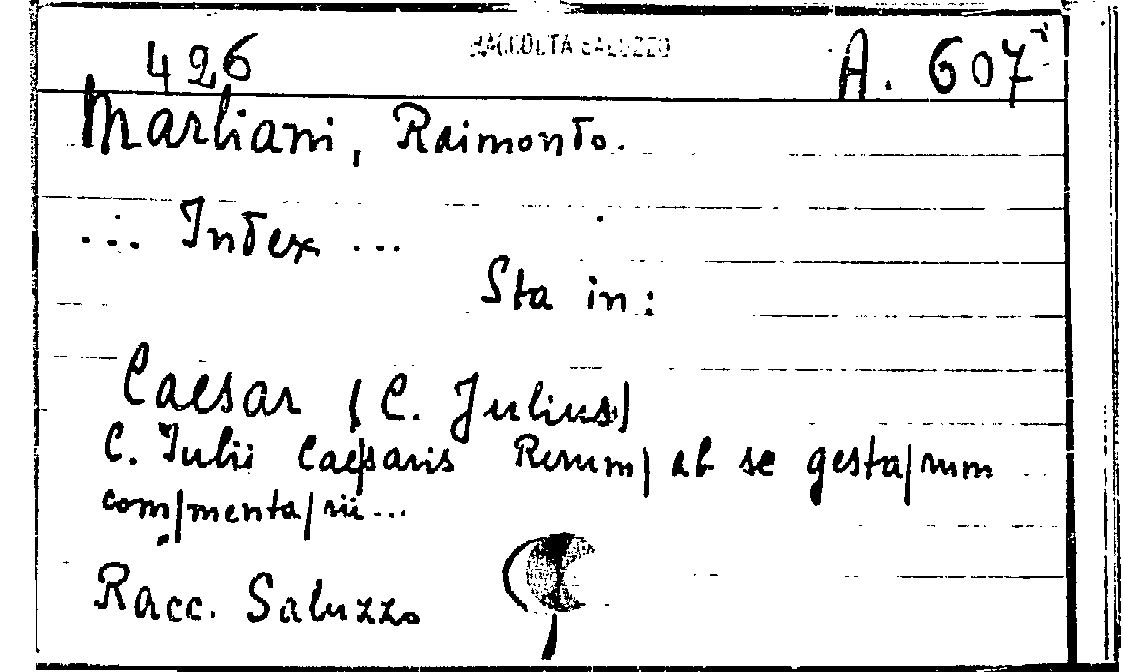 RACCOLTA SALUZZO
426 A. 607
Marliani, Raimondo.
... Index ...
Sta in:
Caesar (C. Julius)
C. Iulii Cae|saris Rerum| ab se gesta|rum
com|menta|rii...
Racc. Saluzzo